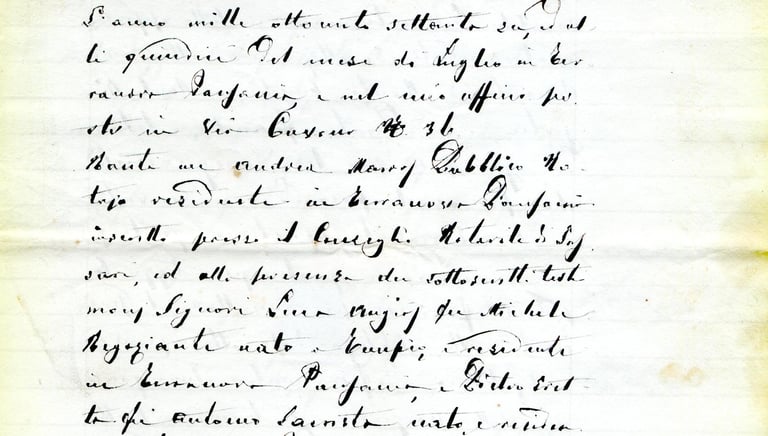 L'anno mille ottocento settanta sei, ed al
li quindici del mese di Luglio in Ter
ranova Pausania, e nel mio officio po
sto in Via Cavour N. 36
Avanti me Andrea Pubblico No
tajo residente in Terranova Pausania
inscritto presso il Consiglio Notarile di Sas
sari, ed alla presenza dei sottoscritti testi
monj Signori fu Michele
Negoziante nato a e residente
in Terranova Pausania, e Pietro
fu Antonio nato, e residen